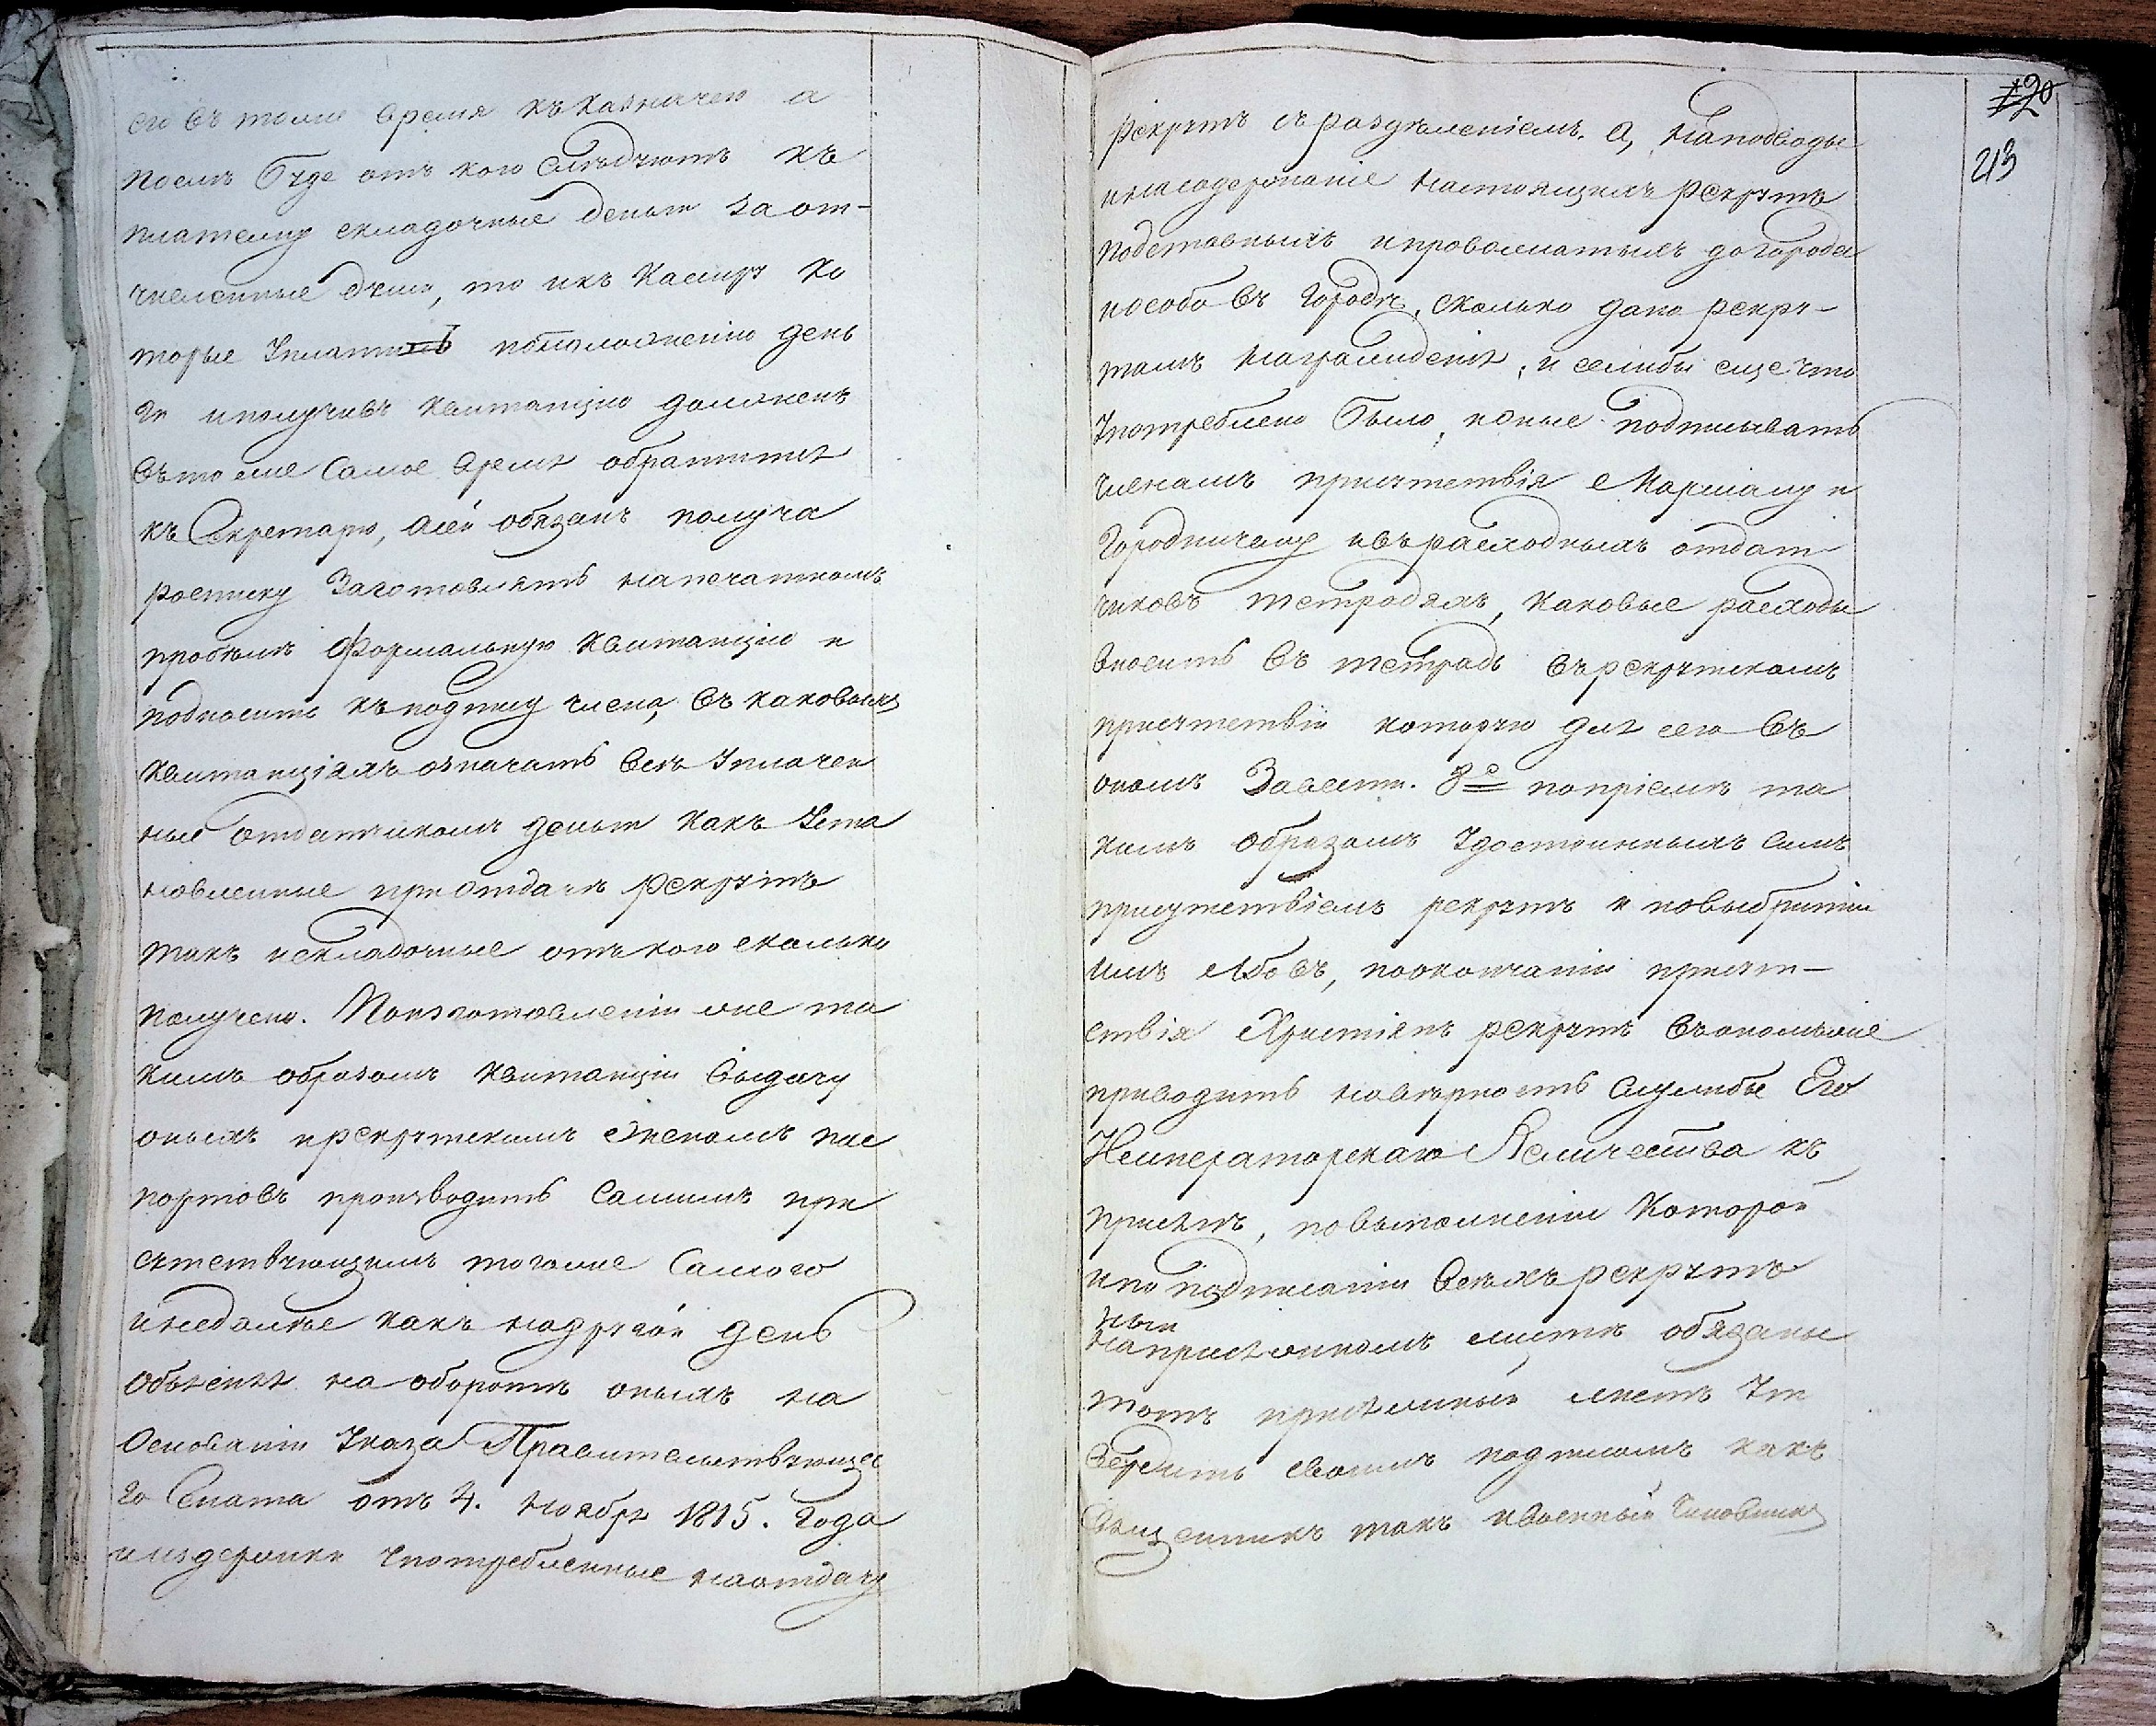 его въ тоже время къ казначею а
поемъ буде отъ кого слѣдуютъ къ
платежу складочные деньги за от-
численные души, то ихъ кассиру ко
торые уплатить по положению день
ги и получивъ квитанцию долженъ
въ то же самое время обратится
къ Секретарю, а сей обязанъ получа
росписку заготовлять на печатномъ
пробѣлѣ формальную квитанцию и
подносить къ подпису члена, въ каковыхъ
квитанціяхъ означать всѣ уплачен
ные отдатчикомъ деньги какъ уста
новленные при отдачѣ рекрутъ
такъ и складочные отъ кого сколько
получено. По изготовленіи онетa
кимъ образомъ квитанціи выдачу
оныхъ и рекрутскимъ женамъ пас
портовъ производить самимъ при
сутствующимъ того же самого
и недалѣе какъ на другой день
объясняя на оборотѣ оныхъ на
основаніи указа Правительствующе
го Сената отъ 4. ноября 1815. года
и издержки употребленные на отдачу
120
213
рекрутъ съ раздѣленіемъ. а, на подводы
и на содержаніе настоящихъ рекрутъ
подставныхъ и провожатыхъ до города
и особо въ городѣ, сколько дано рекру-
тамъ награжденія, и если бы еще что
употреблено было, и оные подписывать
членамъ присутствія Маршалу и
Городничему и въ расходныхъ отдат
чиковъ тетрадяхъ, каковые расходы
вносить въ тетрадь въ рекрутскомъ
присутствіи которую для сего въ
ономъ завести. 8е по пріемѣ та
кимъ образомъ удостоенныхъ симъ
присутствіемъ рекрутъ и по выбритіи
имъ лбовъ, по окончаніи присут-
ствія Христіянъ рекрутъ въ ономъ же
приводить на вѣрность службы Его
Императорскаго Величества къ
присягѣ, по выполненіи которой
и по подписаніи всѣхъ рекрутъ
ными
на присяжномъ листѣ обязаны
тотъ присяжный листъ ут
вердить своимъ подписомъ какъ
Священникъ такъ и военный чиновникъ